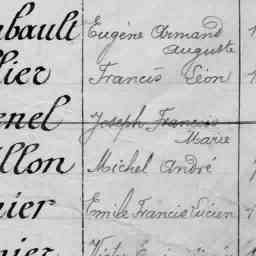 bault Eugène Armand
Auguste
lier Francis Léon
enel Joseph Francis
Marie
llon Michel André
nier Emile Francis Lucien
nier Victor